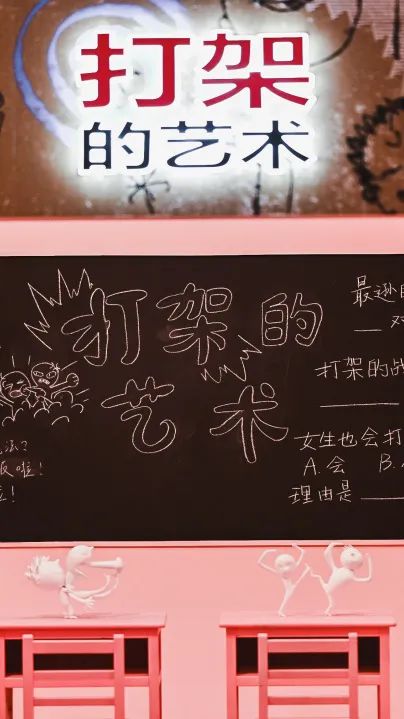 打架
的艺术
打架的
艺术
打架的
女生也会打
A.会 B.
理由是